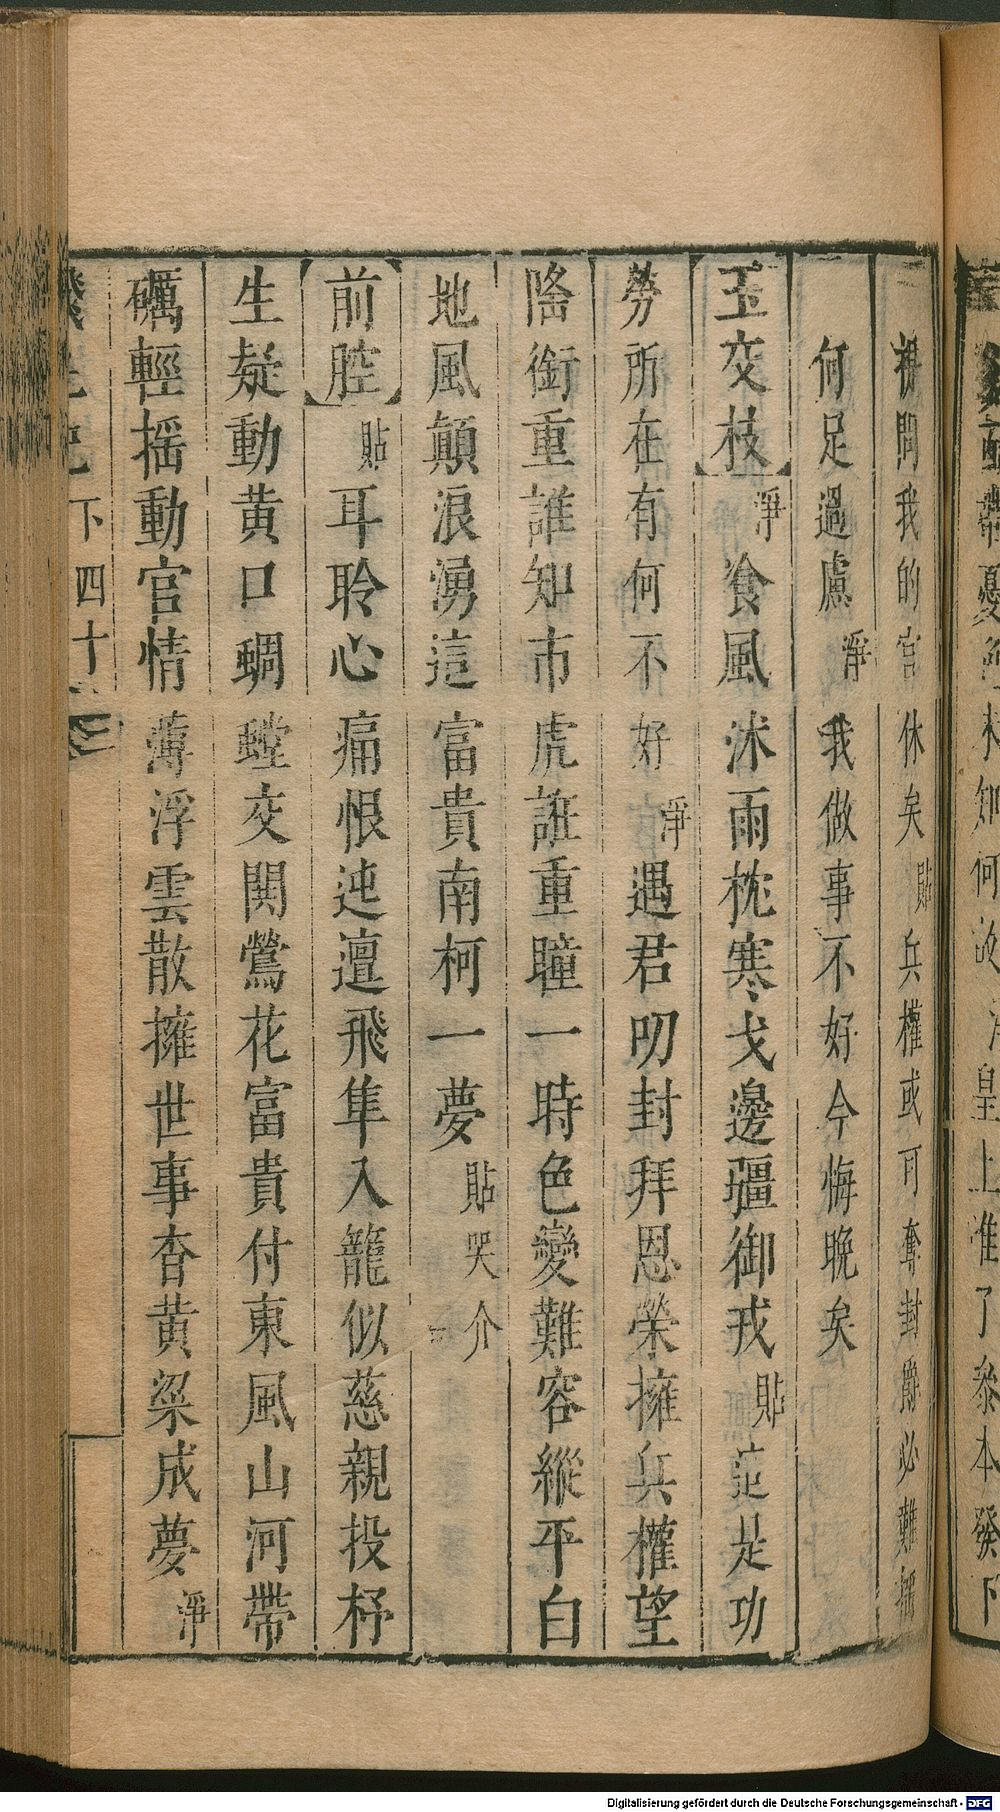 問我的官休矣貼兵權或可奪封爵必難
何足過慮淨我做事不好今悔晚矣
玉交枝淨飡風沐雨枕寒戈邊疆御戎貼這是功
勞所在有何不好淨遇君叨封拜恩榮擁兵權望
隆銜重誰知市虎誑重瞳一時色變難容縱平白
地風顛浪湧這富貴南柯一夢貼哭介
前腔貼耳聆心痛恨迍邅飛隼入籠似慈親投杼
生疑動黃口蜩螳交関鶯花富貴付東風山河帶
礪輕揺動官情薄浮雲散擁世事杳黃粱成夢淨
下 四十三
知何故
皇上准了本發下
Digitalisierung gefördert durch die Deutsche Forschungsgemeinschaft - DFG